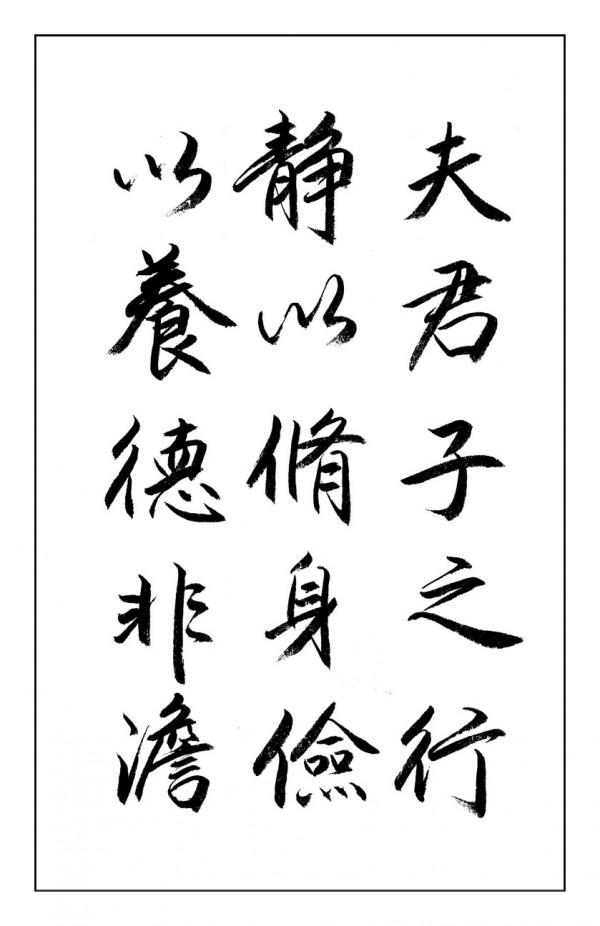 夫君子之行
静以脩身儉
以養德非澹